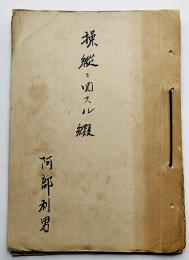 操縦ニ関スル綴
阿部利男